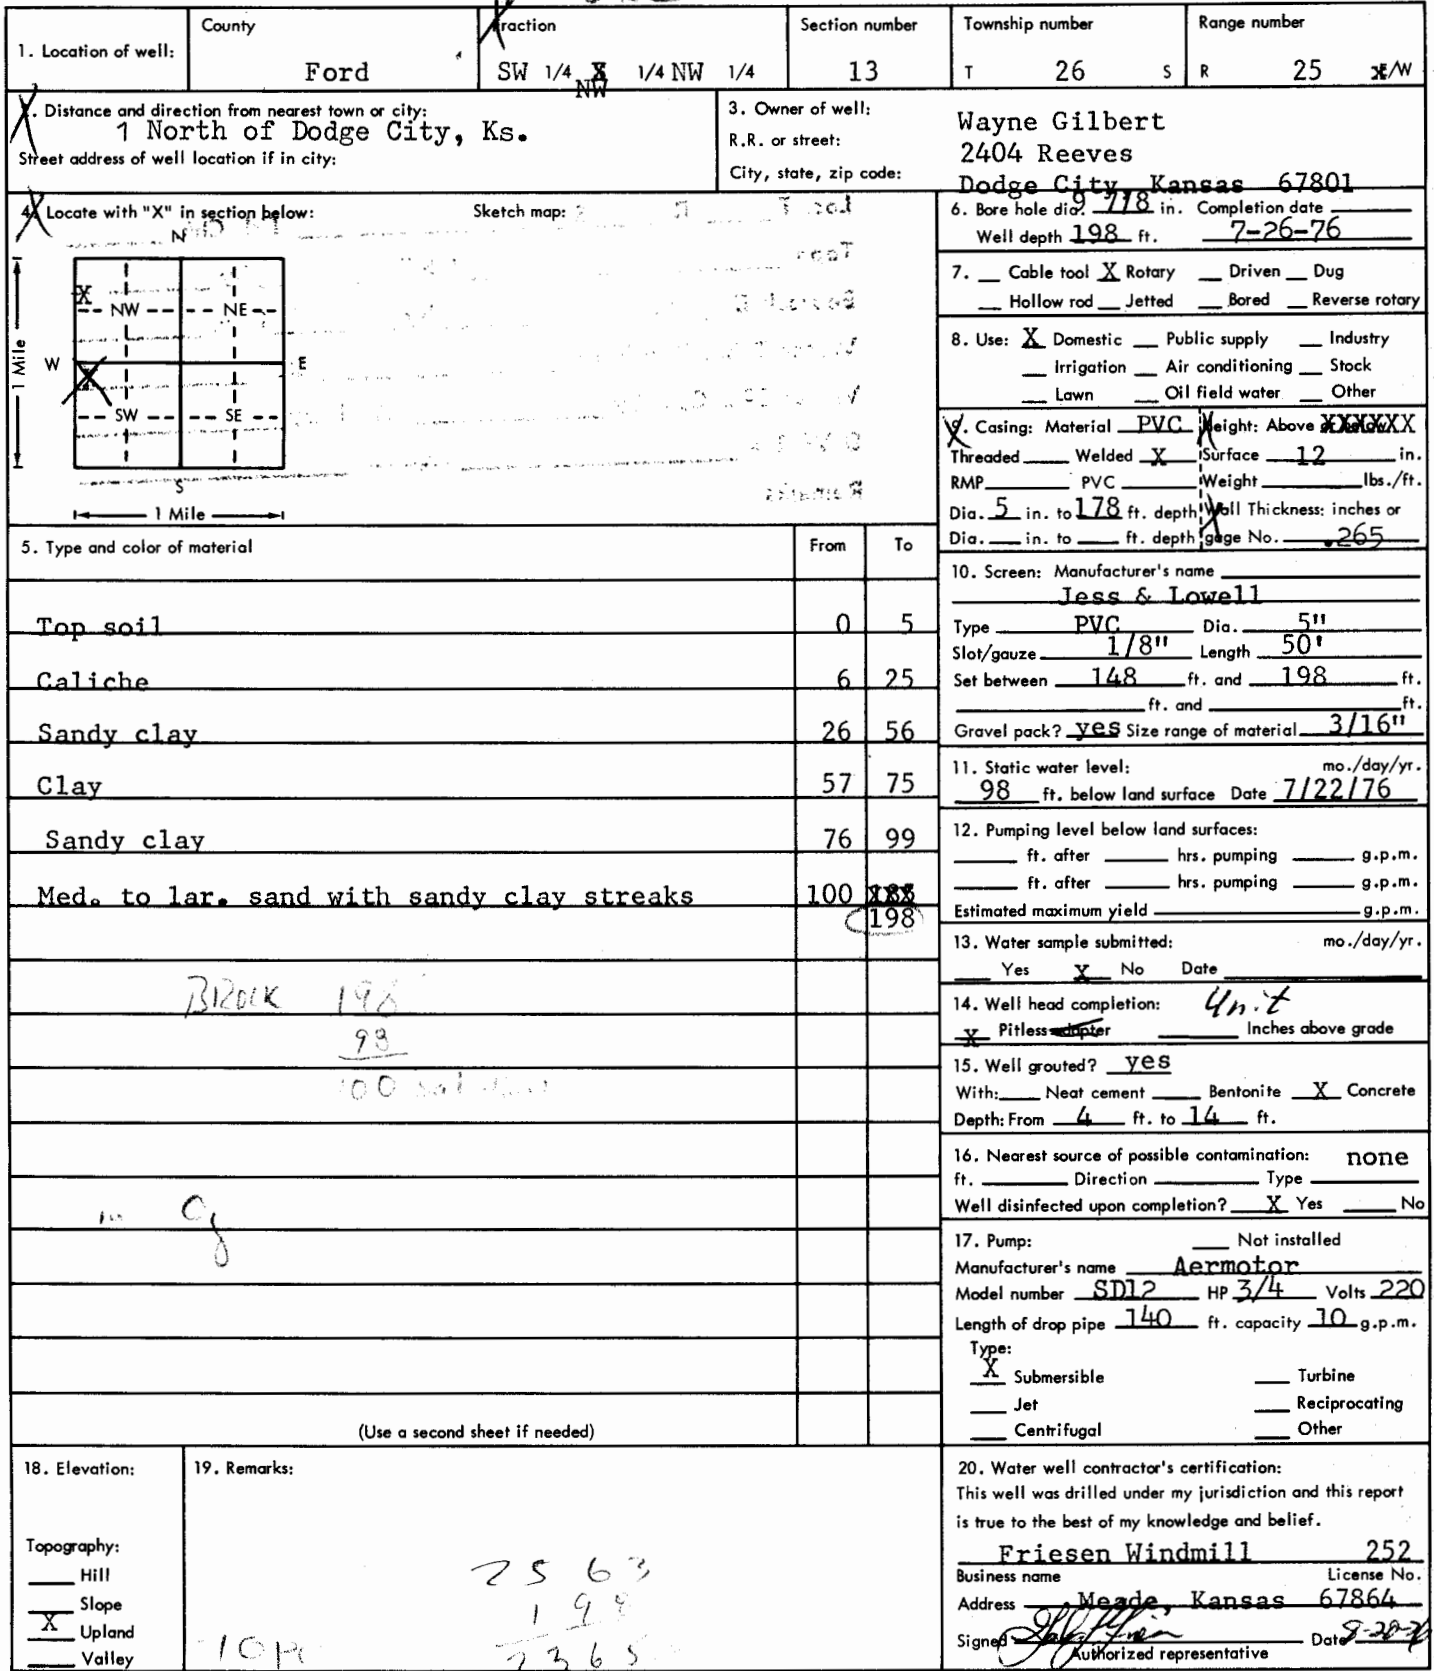 1. Location of well:
County
Ford
Fraction
SW 1/4 X 1/4 NW 1/4
NW
Section number
13
Township number
T 26 S
Range number
R 25 E/W
2. Distance and direction from nearest town or city:
1 North of Dodge City, Ks.
Street address of well location if in city:
3. Owner of well:
R.R. or street:
City, state, zip code:
Wayne Gilbert
2404 Reeves
Dodge City, Kansas 67801
4. Locate with "X" in section below:
Sketch map:
N
X
NW NE
1 Mile
W E
X
SW SE
S
1 Mile
5. Type and color of material From To
Top soil 0 5
Caliche 6 25
Sandy clay 26 56
Clay 57 75
Sandy clay 76 99
Med. to lar. sand with sandy clay streaks 100
198
BROCK 198
98
100 sat
(Use a second sheet if needed)
6. Bore hole dia. 9 7/8 in. Completion date
Well depth 198 ft. 7-26-76
7. __ Cable tool X Rotary __ Driven __ Dug
__ Hollow rod __ Jetted __ Bored __ Reverse rotary
8. Use: X Domestic __ Public supply __ Industry
__ Irrigation __ Air conditioning __ Stock
__ Lawn __ Oil field water __ Other
9. Casing: Material PVC Height: Above or below XX
Threaded __ Welded X Surface 12 in.
RMP __ PVC __ Weight __ lbs./ft.
Dia. 5 in. to 178 ft. depth Wall Thickness: inches or
Dia. __ in. to __ ft. depth gage No. .265
10. Screen: Manufacturer's name
Jess & Lowell
Type PVC Dia. 5"
Slot/gauze 1/8" Length 50'
Set between 148 ft. and 198 ft.
__ ft. and __ ft.
Gravel pack? yes Size range of material 3/16"
11. Static water level: mo./day/yr.
98 ft. below land surface Date 7/22/76
12. Pumping level below land surfaces:
__ ft. after __ hrs. pumping __ g.p.m.
__ ft. after __ hrs. pumping __ g.p.m.
Estimated maximum yield __ g.p.m.
13. Water sample submitted: mo./day/yr.
__ Yes X No Date __
14. Well head completion: Unit
X Pitless adapter __ Inches above grade
15. Well grouted? yes
With: __ Neat cement __ Bentonite X Concrete
Depth: From 4 ft. to 14 ft.
16. Nearest source of possible contamination: none
ft. __ Direction __ Type __
Well disinfected upon completion? X Yes __ No
17. Pump: __ Not installed
Manufacturer's name Aermotor
Model number SD12 HP 3/4 Volts 220
Length of drop pipe 140 ft. capacity 10 g.p.m.
Type:
X Submersible __ Turbine
__ Jet __ Reciprocating
__ Centrifugal __ Other
18. Elevation:
Topography:
__ Hill
__ Slope
X Upland
__ Valley
19. Remarks:
2563
198
2365
20. Water well contractor's certification:
This well was drilled under my jurisdiction and this report
is true to the best of my knowledge and belief.
Friesen Windmill 252
Business name License No.
Address Meade, Kansas 67864
Signed Date
Authorized representative